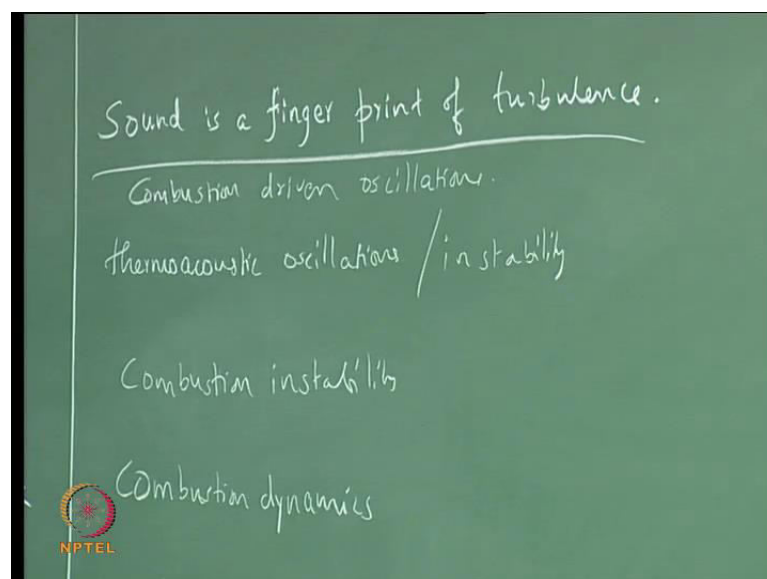 Sound is a finger print of turbulence.
Combustion driven oscillations.
thermoacoustic oscillations / instability
Combustion instability
Combustion dynamics
NPTEL